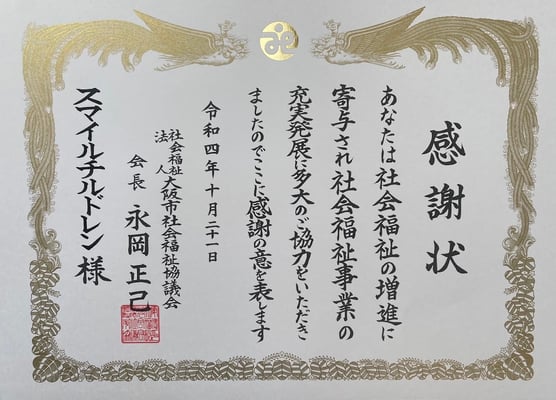 感謝状
あなたは社会福祉の増進に
寄与され社会福祉事業の
充実発展に多大のご協力をいただき
ましたのでここに感謝の意を表します
令和四年十月二十一日
社会福祉
法人
大阪市社会福祉協議会
会長 永岡正己
スマイルチルドレン様